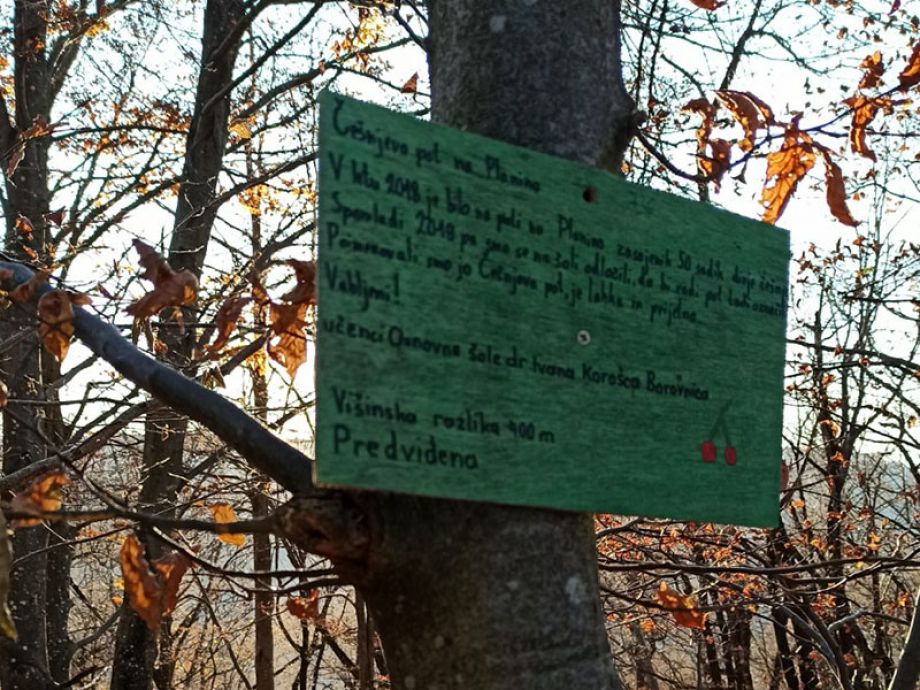 Češnjeva pot na Planino
V letu 2018 je bilo na poti na Planino zasajenih 50 sadik divje češnje
Spomladi 2018 pa smo se na šoli odločili, da bi radi pot tudi označili
Poimenovali smo jo Češnjeva pot, je lahka in prijetna
Vabljeni!
učenci Osnovne šole dr Ivana Korošca Borovnica
Višinska razlika 400 m
Predvidena